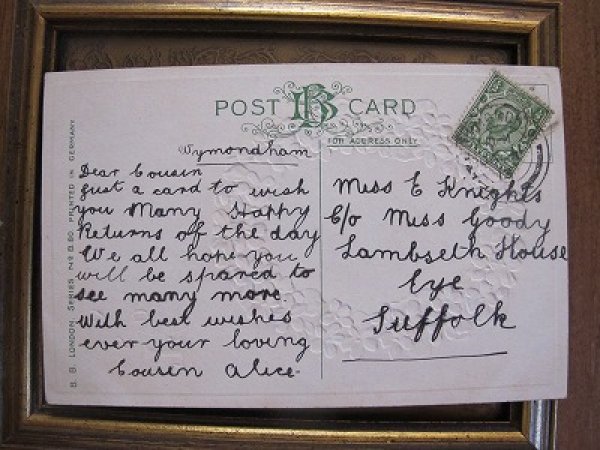 POST BB CARD
FOR ADDRESS ONLY
B. B. LONDON. SERIES No B.80 PRINTED IN GERMANY
Wymondham
Dear Cousin
Just a card to wish
you Many Happy
Returns of the day
We all hope you
will be spared to
see many more.
With best wishes
ever your loving
Cousin Alice-
Miss E Knights
C/o Miss Goody
Lambseth House
Eye
Suffolk